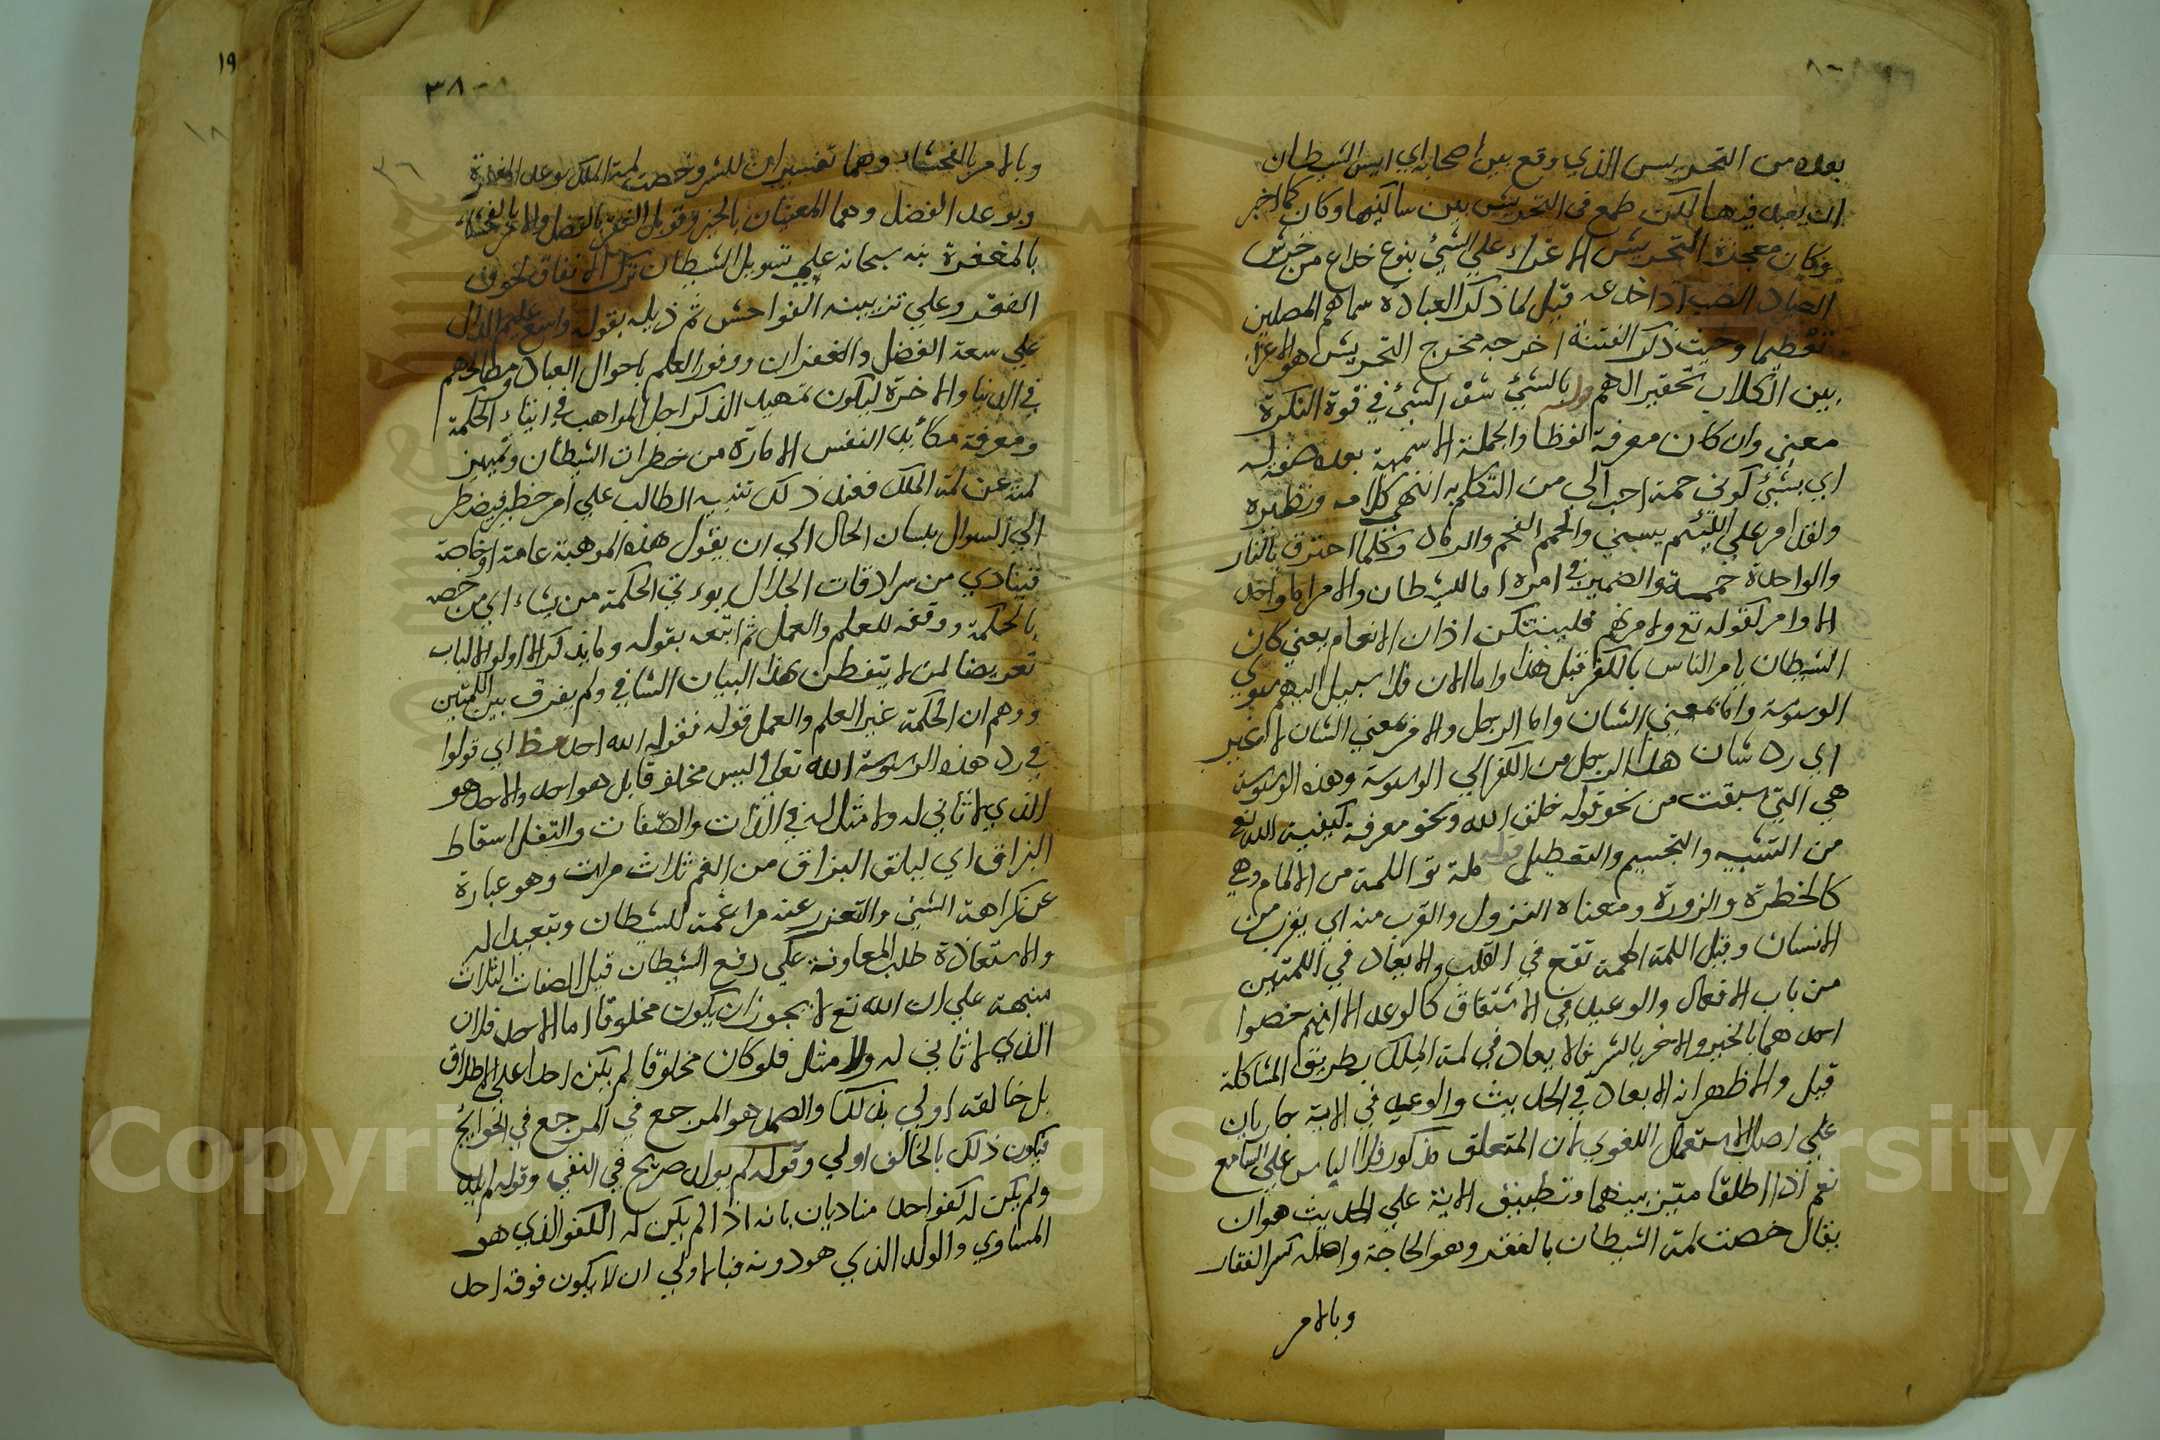 بعده من التحريس الذي وقع بين اصحابه اي ايس الشيطان
ان يعبد فيها لكن طمع في التحريش بين ساكنيها وكان كما اخبر
وكان معجزة التحريش الاغراء علي الشئ بنوع خداع من خرش
الصياد الضب اذا خدعه قيل لما ذكر العبادة سماهم المصلين
تعظيما وحيث ذكر الفتنة اخرجه مخرج التحريش هو الاغراء
بين الكلاب تحقير الهم وله بالشئ الشئ في قوة النكرة
معني وان كان معرفة لفظا والجملة الاسمية بعده صفة له
اي بشئ كوني حممة احب الي من التكلم به انتهى كلامه ونظيره
ولقد امر علي اللئيم يسبني والحمم الفحم والرماد وكلما احترق بالنار
والواحدة حممة والضمير في امره اما للشيطان والامر اما واحد
الاوامر كقوله تع ولامرنهم فليبتكن اذان الانعام يعني كان
الشيطان يامر الناس بالكفر قبل هذا واما الان فلا سبيل اليهم سوي
الوسوسة واما بمعني الشان واما الرجل والامر بمعني الشان لا غير
اي رد شان هذا الرجل من الكفر الي الوسوسة وهذه الوسوسة
هي التي سبقت من نحو قوله خلق الله ونحو معرفة كيفية الله تع
من التشبيه والتجسيم والتعطيل قوله لمة تو اللمة من الالمام وهي
كالخطرة والزورة ومعناه النزول والقرب منه اي يقرب من
الانسان وقيل اللمة الهمة تقع في القلب والايعاد في اللمتين
من باب الافعال والوعيد في الاشتقاق كالوعد الا انهم خصوا
احدهما بالخير والاخر بالشر فالايعاد في لمة الملك بطريق المشاكلة
قيل والاظهر انه الايعاد في الحديث والوعيد في الاية جاريان
علي اصل الاستعمال اللغوي لان المتعلق مذكور فلا الباس علي السامع
نعم اذا اطلقا ميّز بينهما وتطبيق الاية علي الحديث هو ان
يقال خصت لمة الشيطان بالفقر وهو الحاجة واصله كسر الفقار
وبالامر
٣٨
وبالامر بالفحشاء وهما تفسيران للشر وخصت لمة الملك بوعد المغفرة
وبوعد الفضل وهما المعنيان بالخير وقوبل الفقر بالفضل والامر بالفحشاء
بالمغفرة نبه سبحانه علي تسويل الشيطان ترك الانفاق لخوف
الفقر وعلي تزيينه الفواحش ثم ذيله بقوله واسع عليم الدال
علي سعة الفضل والغفران ووفور العلم باحوال العباد ومصالحهم
في الدنيا والاخرة ليكون تمهيد الذكر اجل المواهب في ايتاء الحكمة
ومعرفة مكائد النفس الامارة من خطرات الشيطان وتميز
لمته عن لمة الملك فعند ذلك تنبيه الطالب علي امر خطير فيضطر
الي السوال بلسان الحال الي ان يقول هذه الموهبة عامة او خاصة
فينادي من سرادقات الجلال يوءتي الحكمة من يشاء اي من خصه
بالحكمة ووفقه للعلم والعمل ثم اتبعه بقوله وما يذكر الا اولو الالباب
تعريضا لمن لا يتفطن لهذا البيان الشافي ولم يفرق بين اللمتين
ووهم ان الحكمة غير العلم والعمل قوله فقوله الله احد اي قولوا
في رد هذه الوسوسة الله تعالي ليس مخلوقا بل هو احد والاحد هو
الذي لا ثاني له ولا مثل له في الذات والصفات والتفل اسقاط
البزاق اي ليلق البزاق من الفم ثلاث مرات وهو عبارة
عن كراهة الشئ والتعزر عنه مراغمة للشيطان وتبعيدا له
والاستعاذة طلب المعاونة علي دفع الشيطان قيل الصفات الثلاث
منبهة علي ان الله تع لا يجوز ان يكون مخلوقا اما الاحد فلان
الذي لا ثاني له ولا مثل فلو كان مخلوقا لم يكن احدا علي الاطلاق
بل خالقه اولي بذلك والصمد هو المرجع في المرجع في الحوايج
فيكون ذلك بالخالق اولي وقوله لم يولد صريح في النفي وقوله لم يلد
ولم يكن له كفوا احد مناديان بانه اذا لم يكن له الكفو الذي هو
المساوي والولد الذي هو دونه فبالاولي ان لا يكون فوقه احد
١٩
Copyright © King Saud University